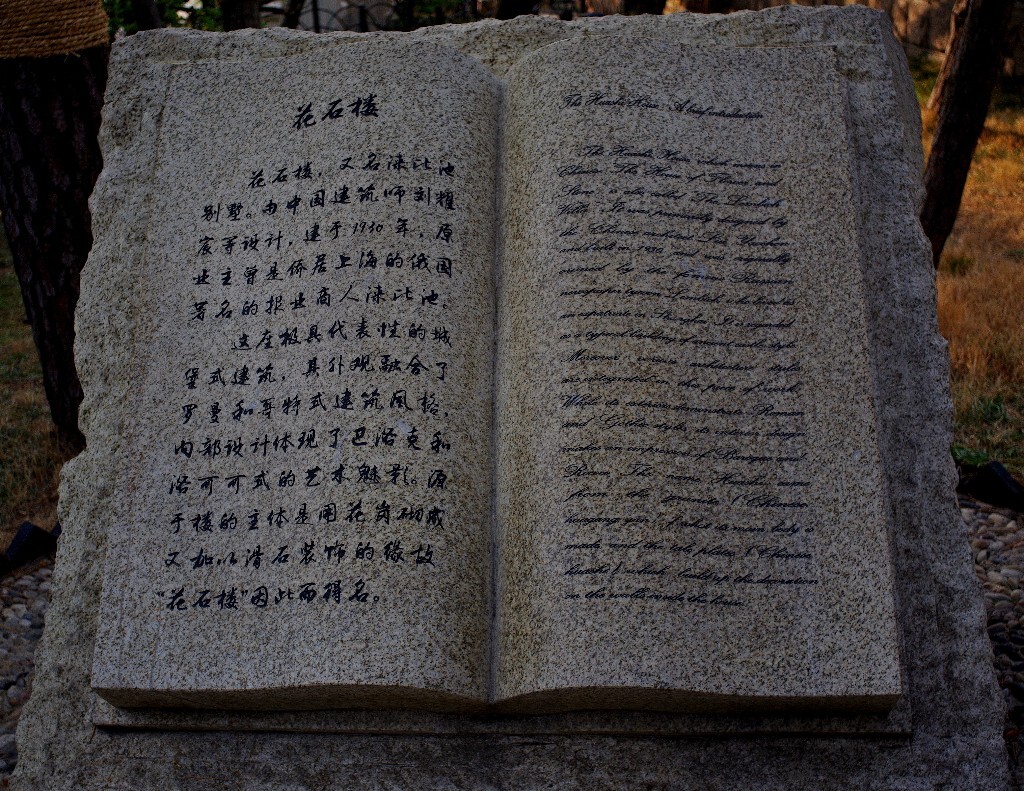 花石楼
花石楼，又名涞比池
别墅。由中国建筑师刘耀
宸等设计，建于1930年，原
业主曾是侨居上海的俄国
著名的报业商人涞比池。
这座极具代表性的城
堡式建筑，其外观融合了
罗曼和哥特式建筑风格，
内部设计体现了巴洛克和
洛可可式的艺术魅影。源
于楼的主体是用花岗砌成
又加以滑石装饰的缘故
“花石楼”因此而得名。
The Huashi House: A brief introduction
The Huashi House which means in
Chinese The House of Flower and
Stone is also called The
Villa. It was designed by
the Chinese architect Liu
and built in 1930 and was
owned by the Russian
newspaper who lived as
an expatriate in Shanghai. It is regarded
as a typical building of
various architecture styles
are integrated in this piece of work.
While its exterior demonstrate Roman
and Gothic styles, its interior design
makes an impression of Baroque and
Rococo. The name Huashi came
from the granite (Chinese:
huagang yan) which its main body is
made and the talc plates (Chinese:
huashi) which build up the decoration
on the walls inside the house.